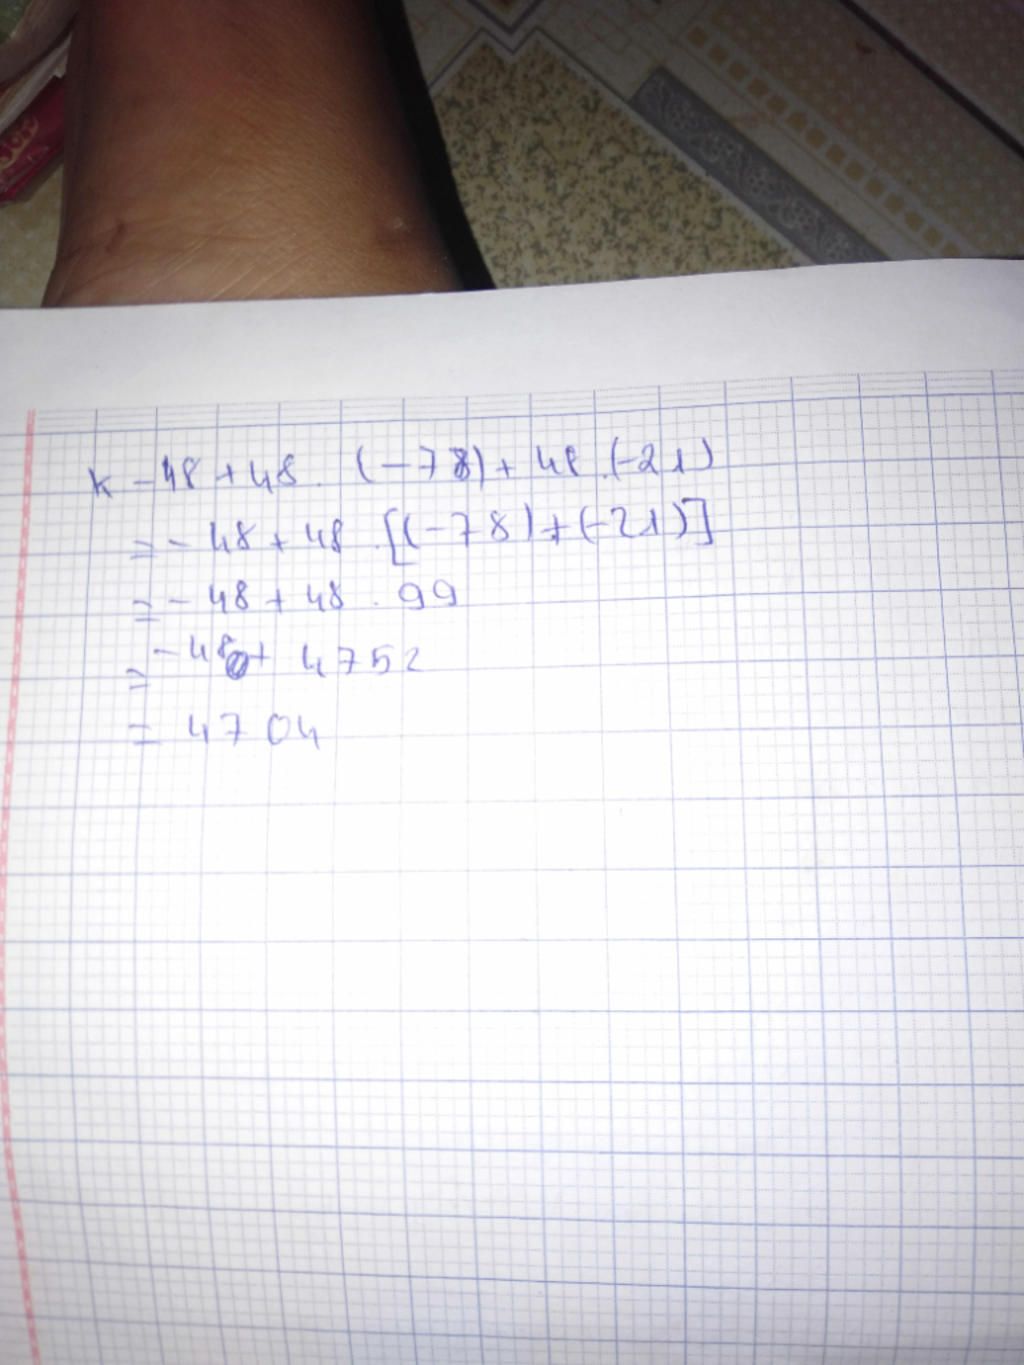 k -48 + 48 . (-78) + 48 .(-21)
= - 48 + 48 .[(-78) + (-21)]
= - 48 + 48 . 99
= -48 + 4752
= 4704